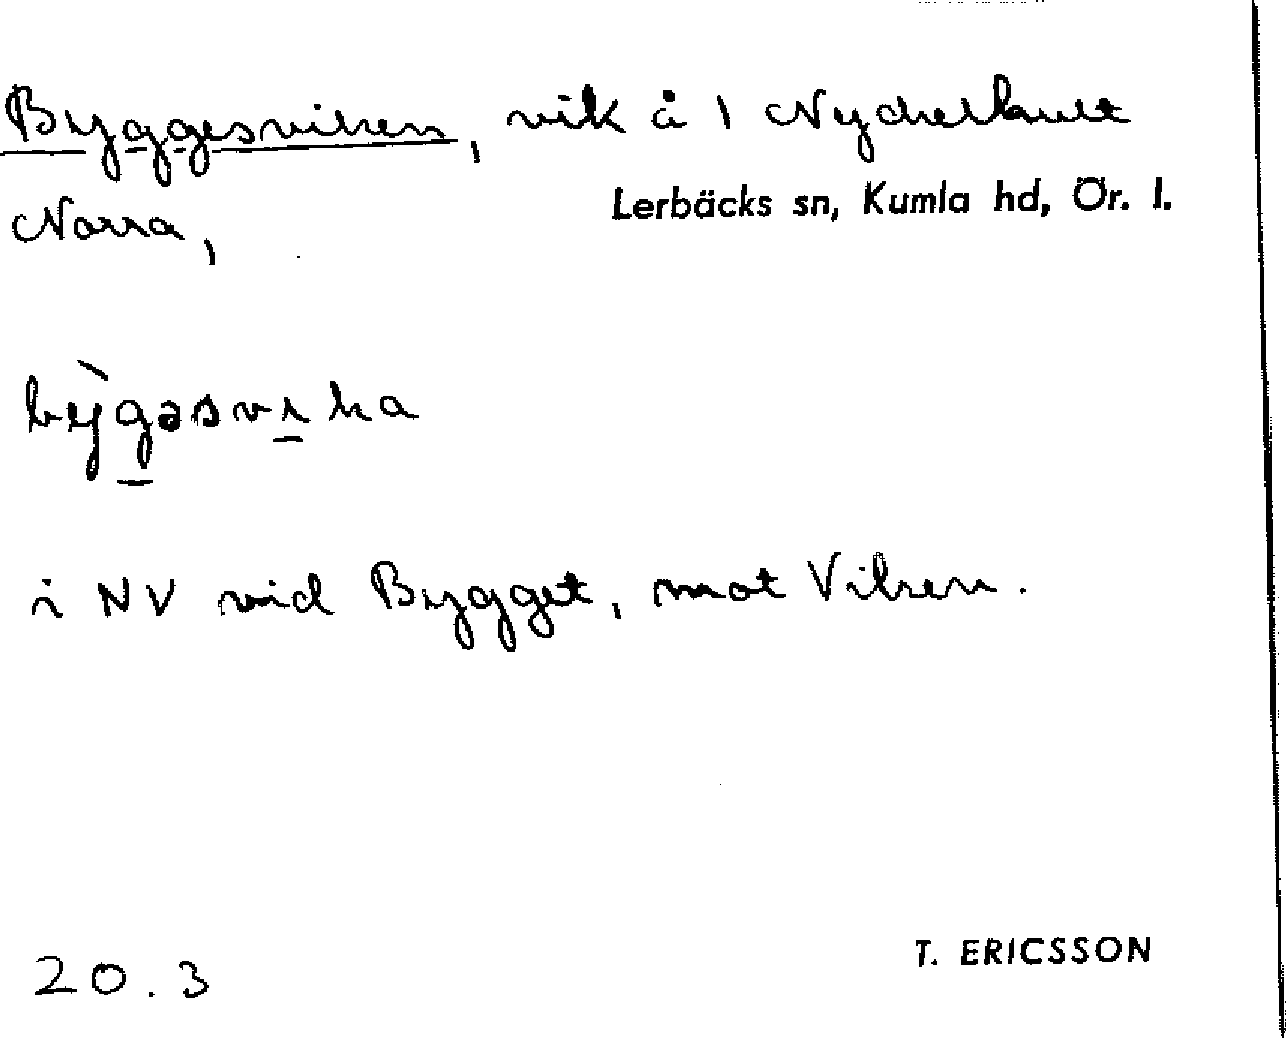 Byggesviken, vik å 1 Nyckelhult
Norra,
Lerbäcks sn, Kumla hd, Ör. l.
bỳgəsvɩka
i NV vid Bygget, mot Viken.
20.3
T. ERICSSON